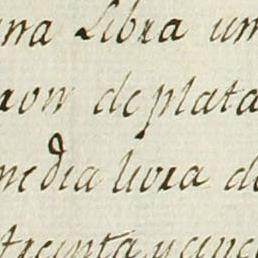 una Libra um
aon de plata
media livra de
treinta y cinco